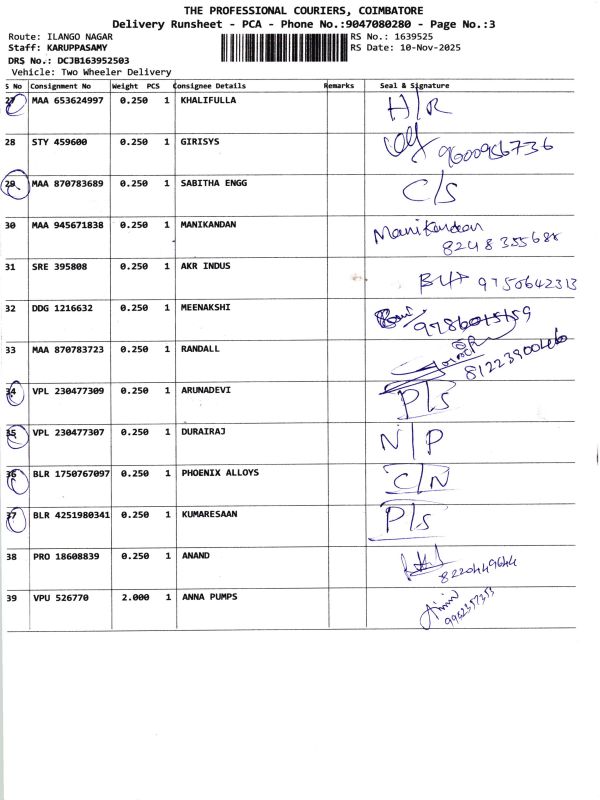 THE PROFESSIONAL COURIERS, COIMBATORE
Delivery Runsheet - PCA - Phone No.:9047080280 - Page No.:3
Route: ILANGO NAGAR RS No.: 1639525
Staff: KARUPPASAMY RS Date: 10-Nov-2025
DRS No.: DCJB163952503
Vehicle: Two Wheeler Delivery
S No Consignment No Weight PCS Consignee Details Remarks Seal & Signature
27 MAA 653624997 0.250 1 KHALIFULLA H/R
28 STY 459600 0.250 1 GIRISYS 9600956736
29 MAA 870783689 0.250 1 SABITHA ENGG C/S
30 MAA 945671838 0.250 1 MANIKANDAN Manikandan
31 SRE 395808 0.250 1 AKR INDUS 9750642313
32 DDG 1216632 0.250 1 MEENAKSHI
33 MAA 870783723 0.250 1 RANDALL
34 VPL 230477309 0.250 1 ARUNADEVI P/S
35 VPL 230477307 0.250 1 DURAIRAJ N/P
36 BLR 1750767097 0.250 1 PHOENIX ALLOYS C/N
37 BLR 4251980341 0.250 1 KUMARESAAN P/S
38 PRO 18608839 0.250 1 ANAND 8220449644
39 VPU 526770 2.000 1 ANNA PUMPS